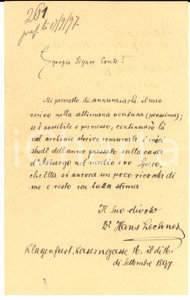 261
Egregio Signor Conte!
Mi permetto di annunziarle il mio
arrivo nella settimana ventura (prossima);
se è possibile e permesso, continuerò là
nel archivio storico comunale i miei
studi dell'anno passato sulla casa
d'Asburgo nel medio evo. Spero,
che Ella si ancora un poco ricorda di
me e resto con tutta stima
Il Suo devoto
Dr Hans Lechner
Klagenfurt, Kaserngasse 16. il di 16.
di Settembre 1897